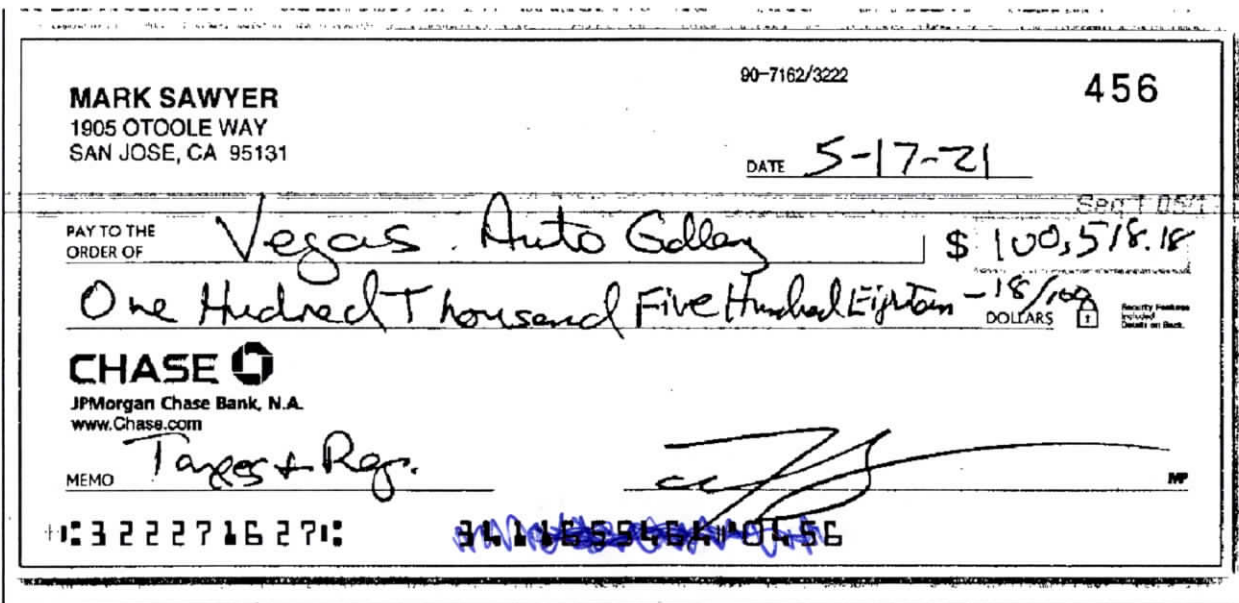 90-7162/3222
456
MARK SAWYER
1905 OTOOLE WAY
SAN JOSE, CA 95131
DATE 5-17-21
PAY TO THE ORDER OF Vegas Auto Gallery $ 100,518.18
One Hudred Thousand Five Hundred Eighteen -18/100 DOLLARS
Security Features Included Details on Back.
CHASE
JPMorgan Chase Bank, N.A.
www.Chase.com
MEMO Taxes + Reg.
MP
⑆322271627⑆